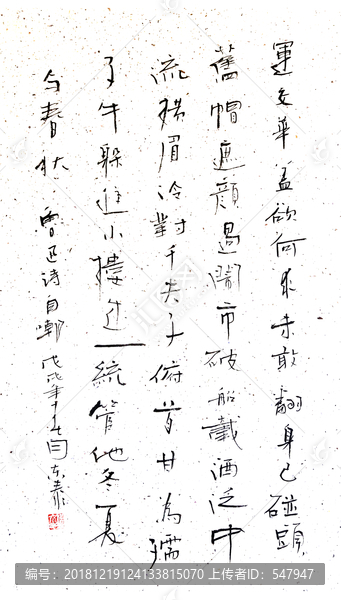 運交華盖欲何求未敢翻身已碰頭
舊帽遮顏過鬧市破船載酒泛中
流橫眉冷對千夫子俯首甘為孺
子牛躲進小樓成一統管他冬夏
与春秋 魯迅诗自嘲 戊戌年 东泰
编号：20181219124133815070 上传者ID：547947